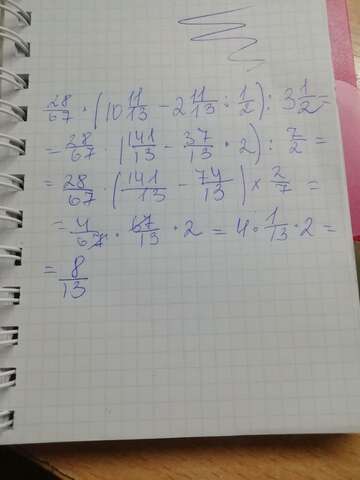 28/67 · (10 11/13 - 2 11/13 : 1/2) : 3 1/2 =
= 28/67 · (141/13 - 37/13 · 2) : 7/2 =
= 28/67 · (141/13 - 74/13) × 2/7 =
= 4/67 · 67/13 · 2 = 4 · 1/13 · 2 =
= 8/13